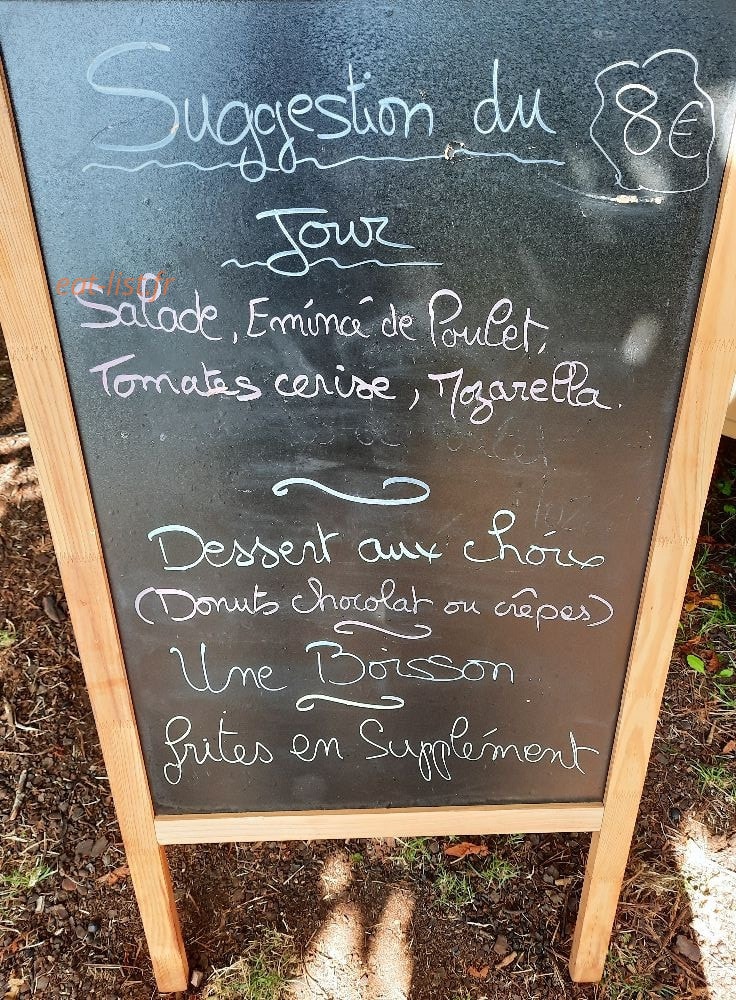 Suggestion du
8€
Jour
eat-list.fr
Salade, Emincé de Poulet,
Tomates cerise, Mozarella.
Dessert aux choix
(Donuts chocolat ou crêpes)
Une Boisson
frites en Supplément